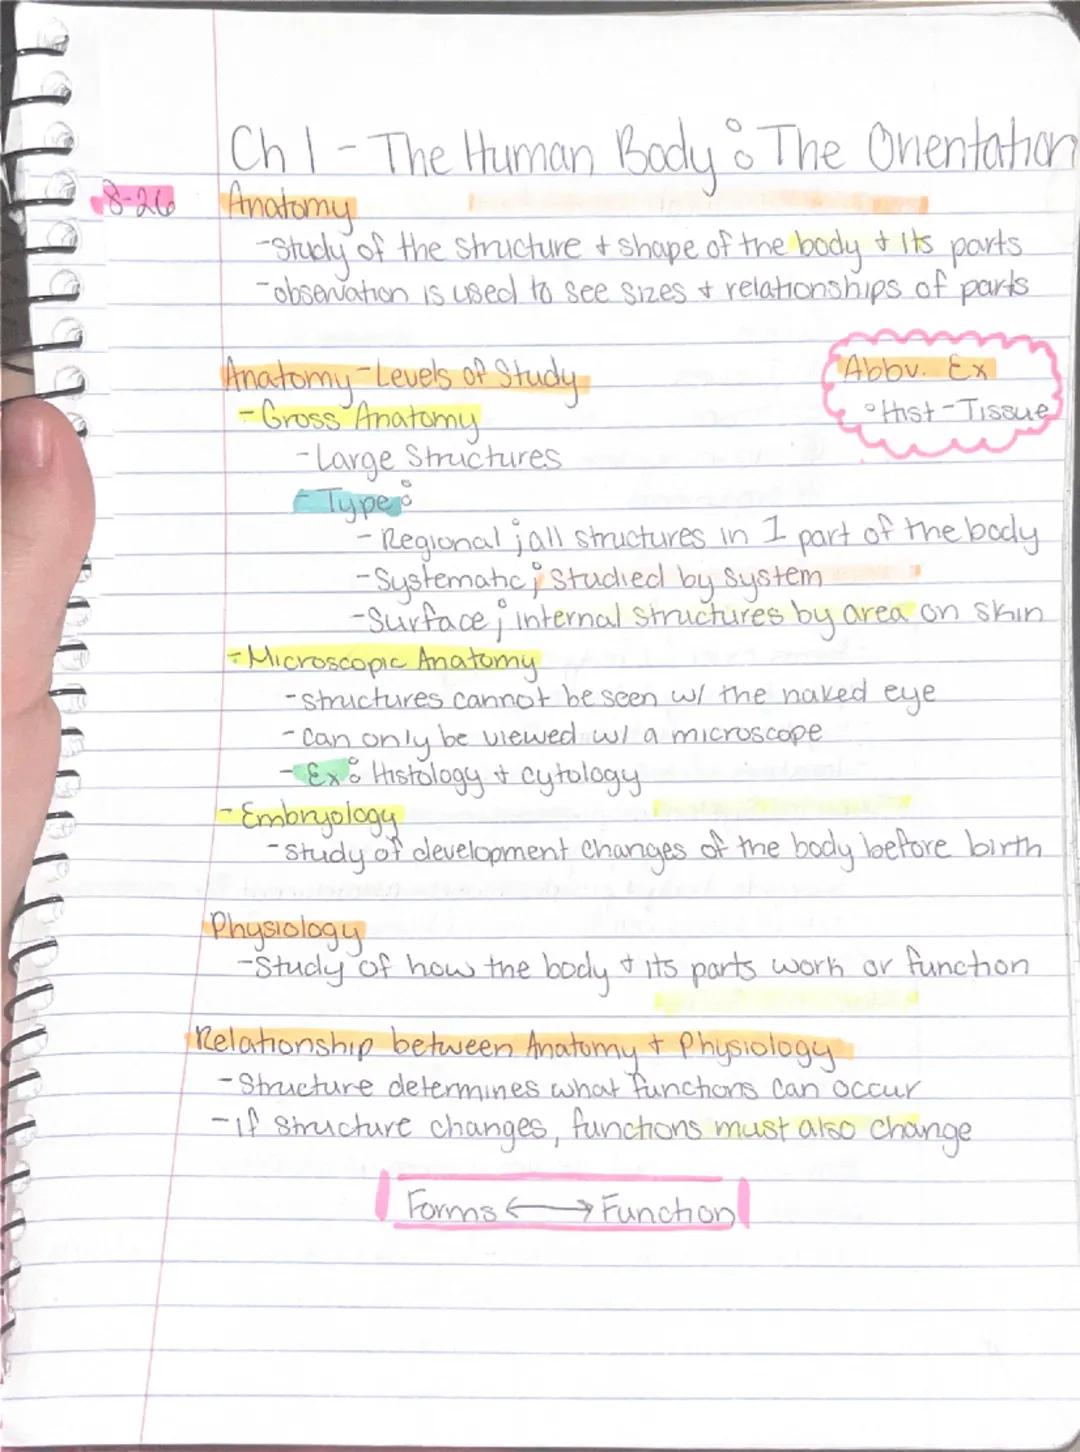 Ch 1 - The Human Body : The Orientation
8-26 Anatomy
- Study of the structure + shape of the body + its parts
- observation is used to see sizes + relationships of parts
Anatomy - Levels of Study
Abbv. Ex
- Gross Anatomy
° Hist - Tissue
- Large Structures
- Type:
- Regional ; all structures in 1 part of the body
- Systematic ; Studied by System
- Surface ; internal structures by area on skin
- Microscopic Anatomy
- structures cannot be seen w/ the naked eye
- Can only be viewed w/ a microscope
- Ex: Histology + cytology
- Embryology
- Study of development changes of the body before birth
Physiology
- Study of how the body + its parts work or function
Relationship between Anatomy + Physiology
- Structure determines what functions can occur
- If structure changes, functions must also change
Forms ⟷ Function